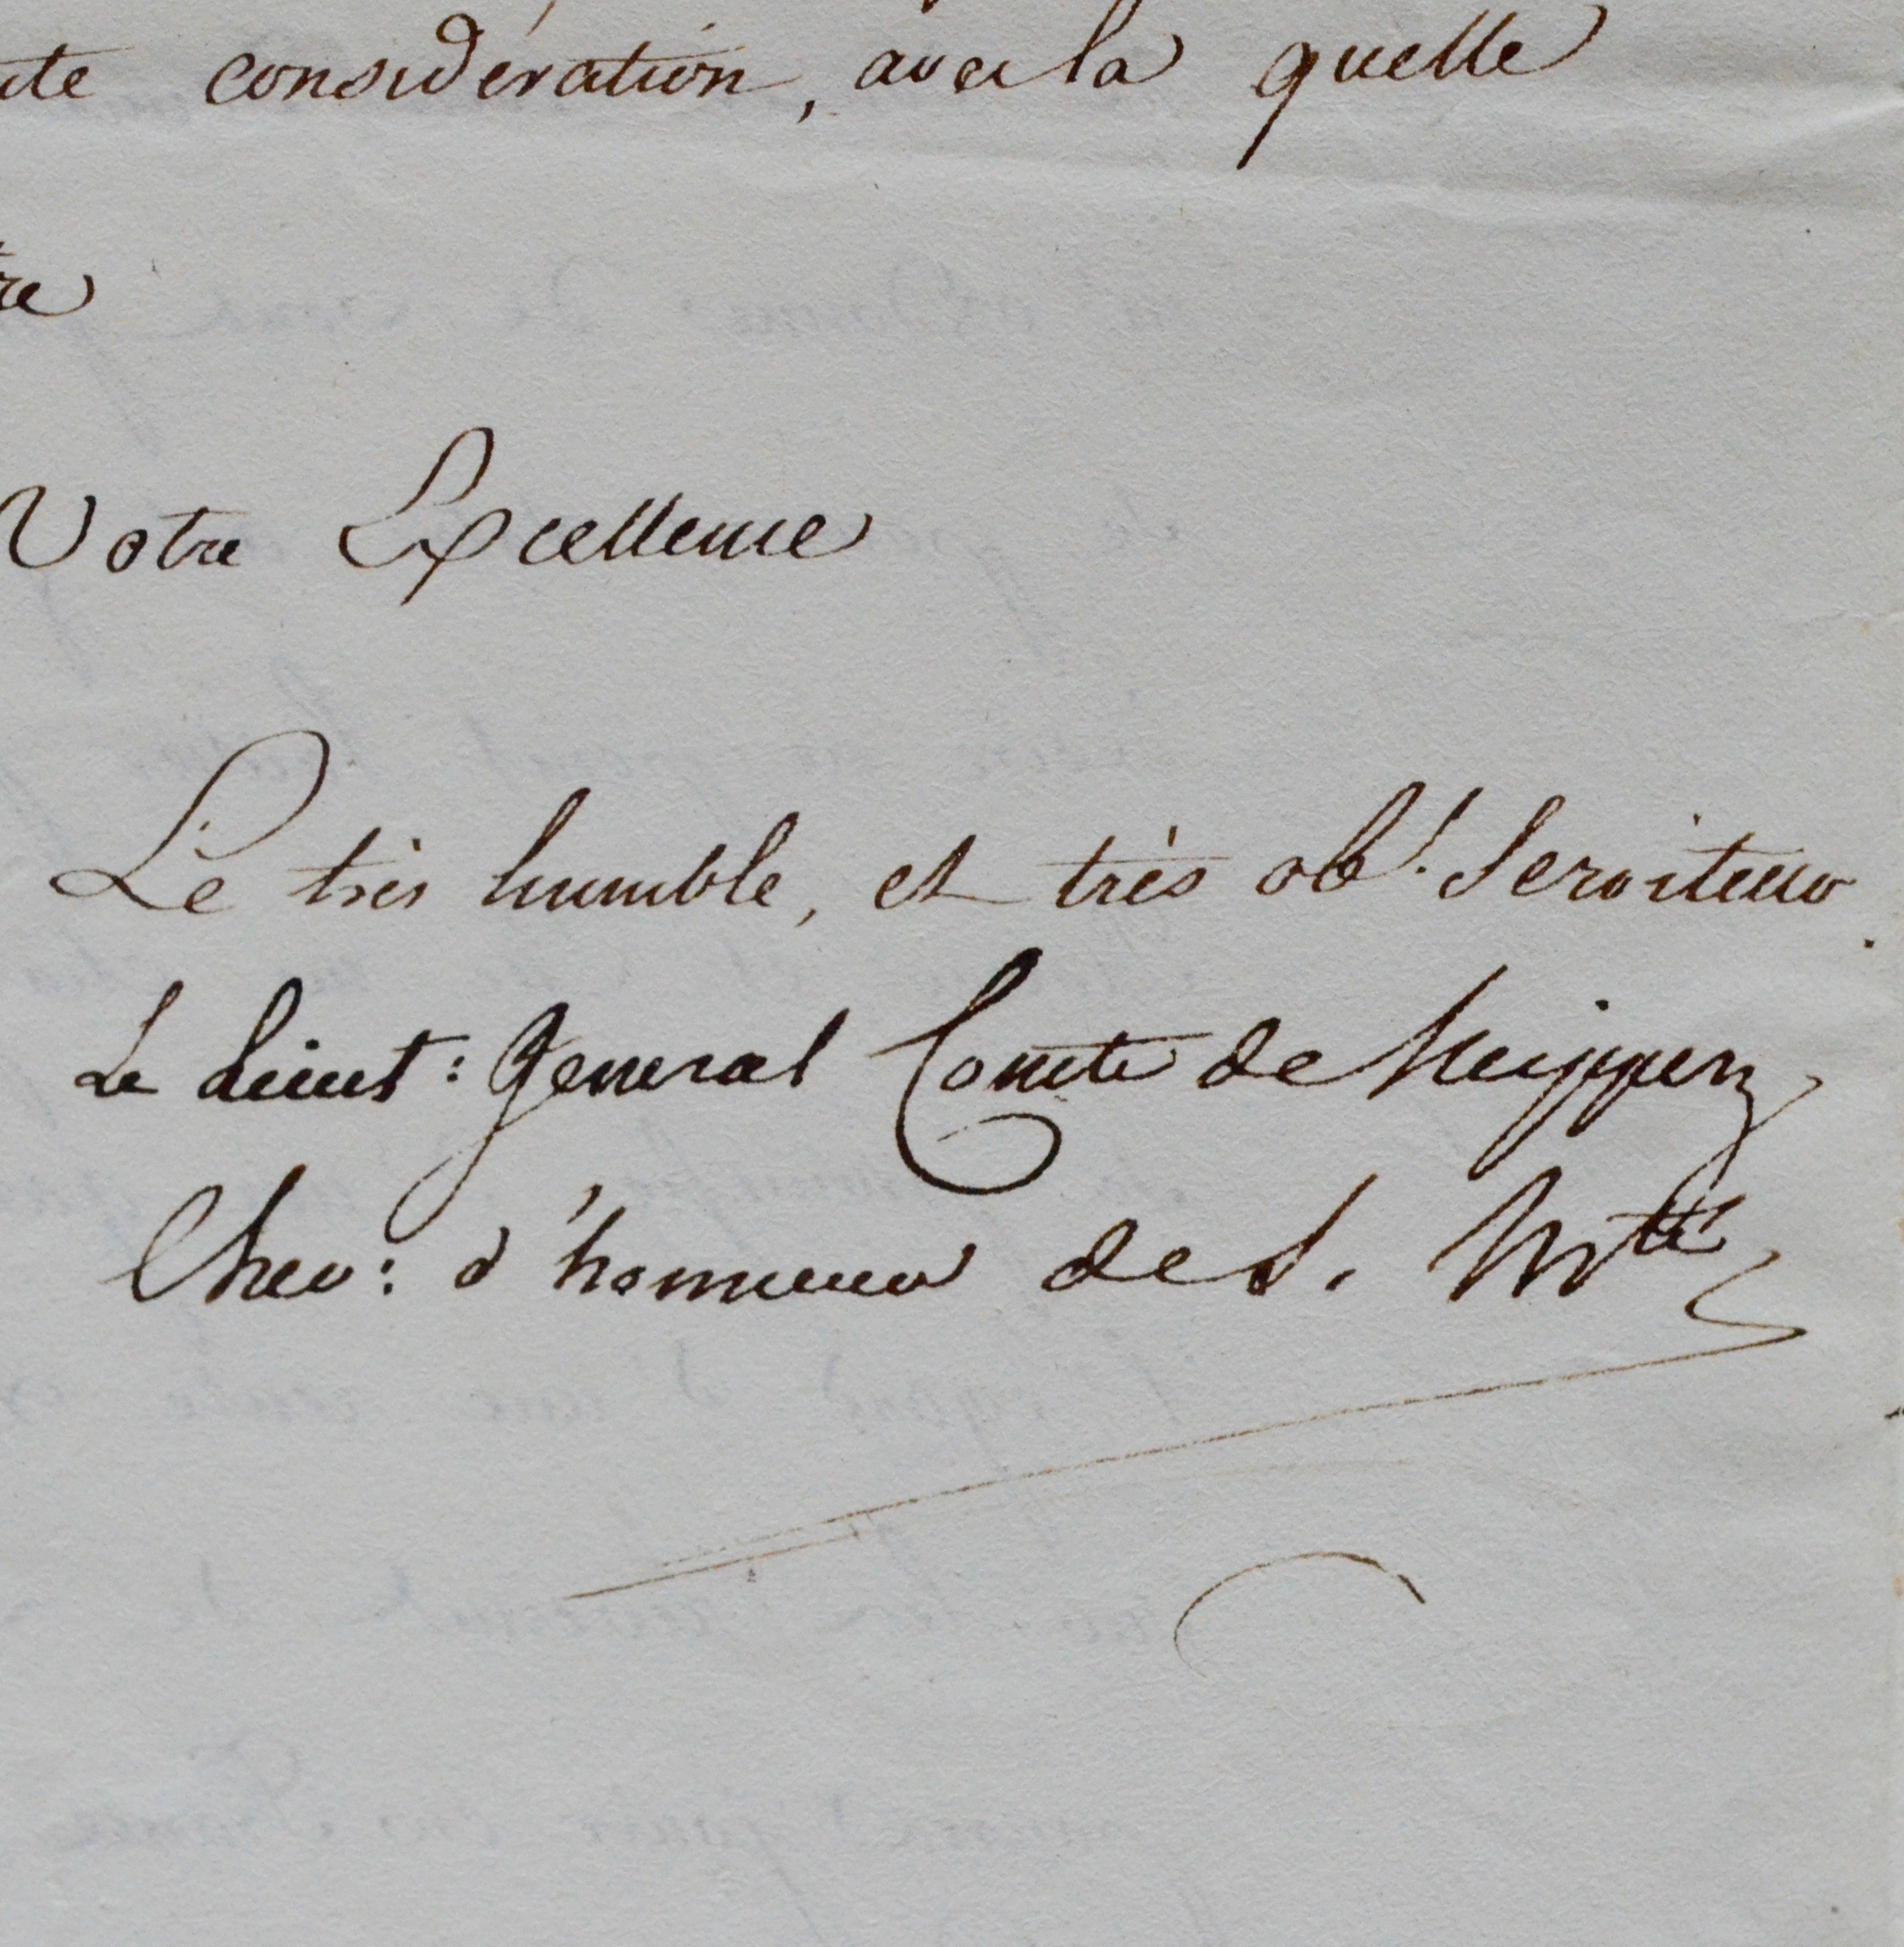 ute considération, avec la quelle
re
Votre Excellence
Le très humble, et très ob.t Serviteur
Le Lieut: General Comte de Neipperg
Chev: d'honneur de S. Mté